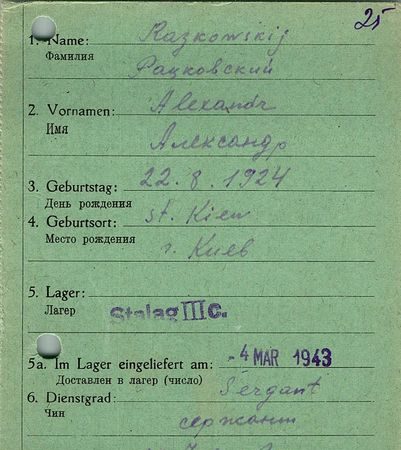 25
1. Name: Razkowskij
Фамилия Рацковский
2. Vornamen: Alexandr
Имя Александр
3. Geburtstag: 22. 8. 1924
День рождения
4. Geburtsort: st. Kiew
Место рождения г. Киев
5. Lager:
Лагерь Stalag III c.
5a. Im Lager eingeliefert am: - 4 MAR 1943
Доставлен в лагерь (число)
6. Dienstgrad: Sergant
Чин сержант